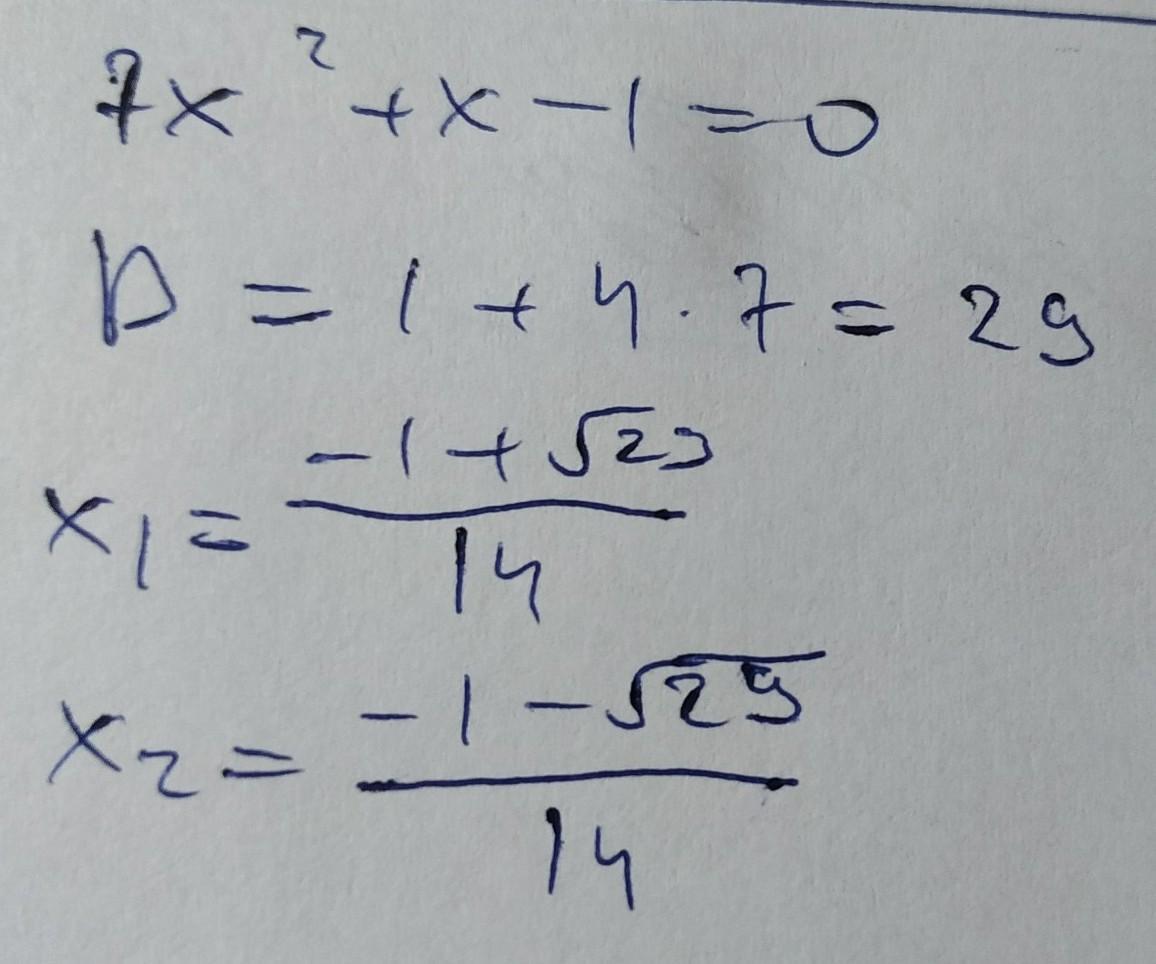 7x² + x − 1 = 0
D = 1 + 4 · 7 = 29
x₁ = (−1 + √29)/14
x₂ = (−1 − √29)/14